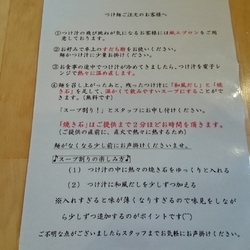 つけ麺ご注文のお客様へ
①つけ汁の飛び跳ねが気になるお客様には紙エプロンをご用
意しております。
②お好みで卓上のすだち酢をお使いください。
麺かつけ汁に少量お掛けください。
③お食事の途中でつけ汁が冷めてきましたら、つけ汁を電子レ
ンジで熱々に温め直します。
④麺を召し上がったあと、残ったつけ汁に「和風だし」と「焼
き石」を足して、温かくて飲みやすいスープにすることがで
きます。(無料です)
「スープ割り!」とスタッフにお申し付けください。
「焼き石」はご提供まで2分ほどお時間を頂きます。
(ご提供の直前に、直火で熱々に熱するため)
麺がなくなる少し前にお声掛けくださいませ。
♪スープ割りの楽しみ方♪
(1) つけ汁の中に熱々の焼き石をゆっくりと入れる
(2) つけ汁に和風だしを少しずつ加える
※入れすぎると味が薄くなりすぎるので味見をしなが
ら少しずつ追加するのがポイントです
ご不明な点がございましたらスタッフまでお気軽にお声掛けください。